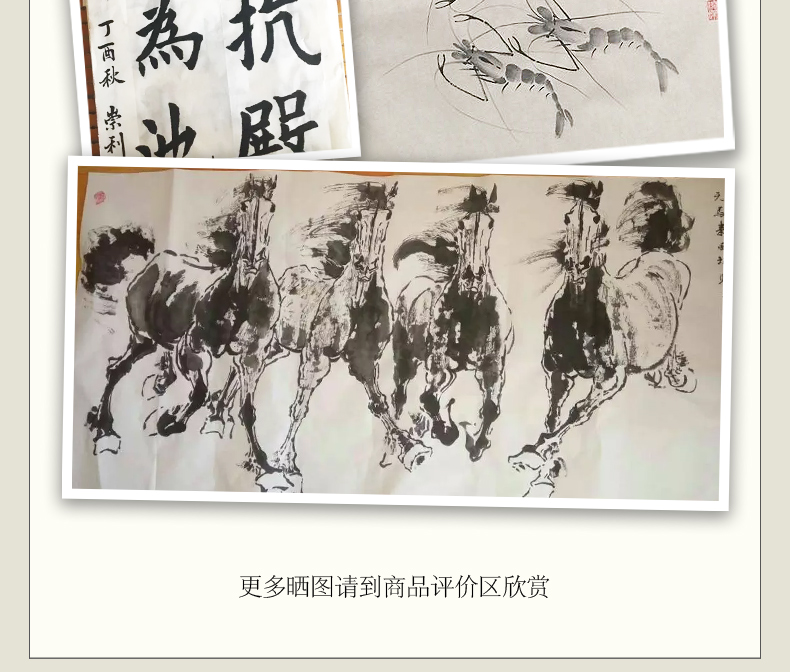 抗
殿
為
池
丁酉秋 崇利
更多晒图请到商品评价区欣赏